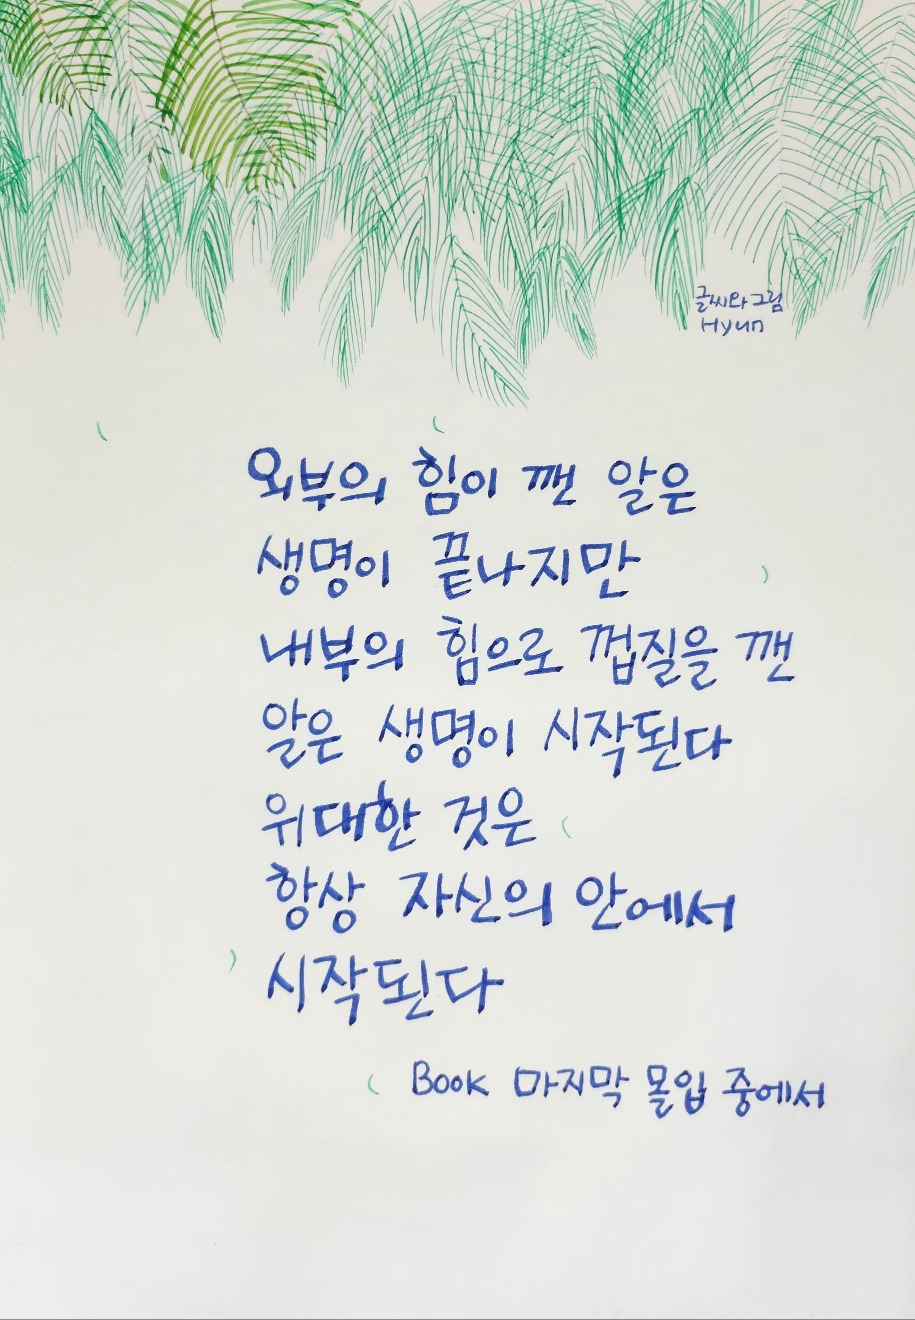 글씨와 그림
Hyun
외부의 힘이 깬 알은
생명이 끝나지만
내부의 힘으로 껍질을 깬
알은 생명이 시작된다
위대한 것은
항상 자신의 안에서
시작된다
Book 마지막 몰입 중에서